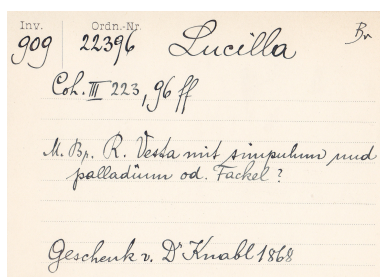 Inv. Ordn.-Nr.
909 22396 Lucilla Br
Coh. III 223, 96 ff
M. Br. R. Vesta mit simpulum und
palladium od. Fackel?
Geschenk v. Dr Knabl 1868